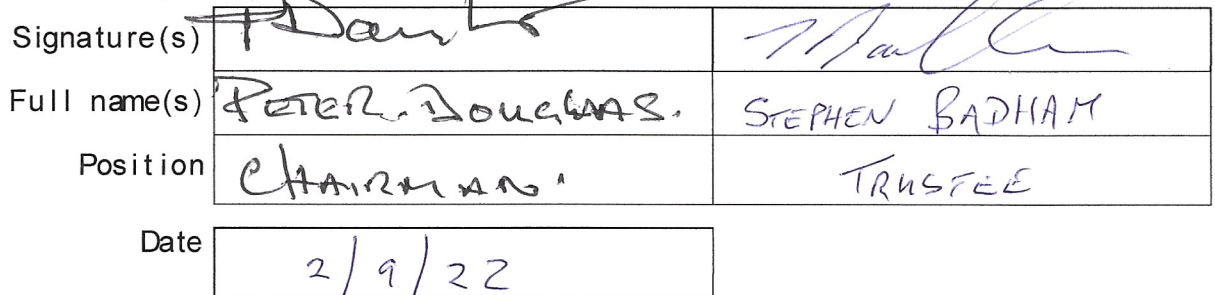 Signature(s)
Full name(s) PETER. DOUGLAS. STEPHEN BADHAM
Position CHAIRMAN. TRUSTEE
Date 2/9/22